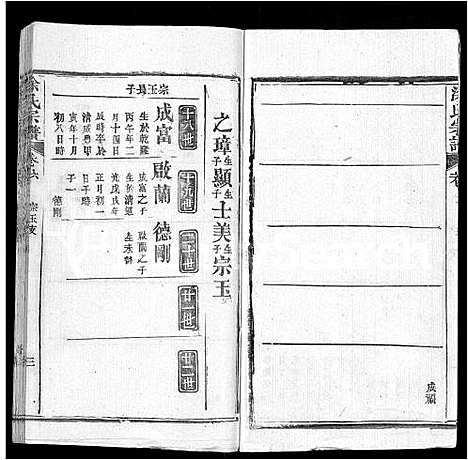 氏宗譜
成顯
之璋生子顯生子士美生子宗玉
十八世
十九世
二十世
廿一世
廿二世
宗玉長子
成富
生於乾隆
丙午年二
月十四日
清咸
初八日時
子一
啟蘭
成富之子
生於清道
光戊戌年
正月初一
日子時
德剛
德剛
啟蘭之子
生未詳
氏宗譜
宗玉支
三